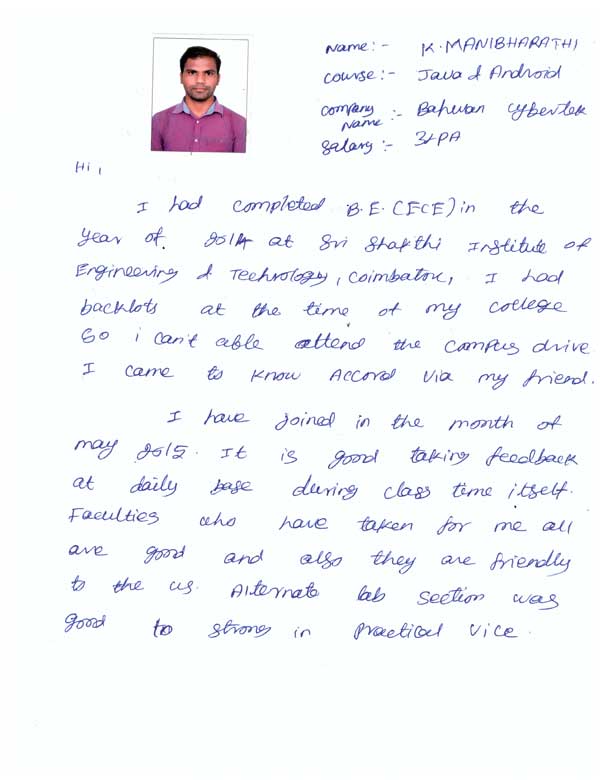 Name:- K. MANIBHARATHI
course:- Java & Android
company Name:- Bahwan cybertek
salary:- 3LPA
Hi,
I had completed B.E. (ECE) in the
year of. 2014 at Sri Shakthi Institute of
Engineering & Technology, Coimbatore, I had
backlots at the time of my college
So i can't able attend the campus drive
I came to know Accord via my friend.
I have joined in the month of
may 2015. It is good taking feedback
at daily base during class time itself.
Faculties who have taken for me all
are good and also they are friendly
to the us. Alternate lab section was
good to strong in practical vice.